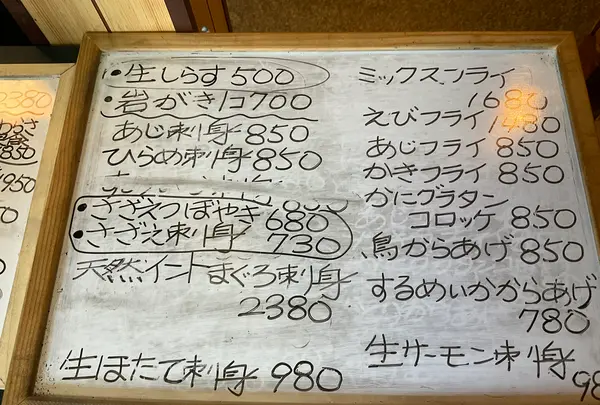 ・生しらす500
・岩がき1コ700
あじ刺身850
ひらめ刺身850
・さざえつぼやき680
・さざえ刺身730
天然イントまぐろ刺身
2380
生ほたて刺身980
ミックスフライ
1680
えびフライ1480
あじフライ850
かきフライ850
かにグラタン
コロッケ850
鳥からあげ850
するめいかからあげ
780
生サーモン刺身
98
2380
850
950